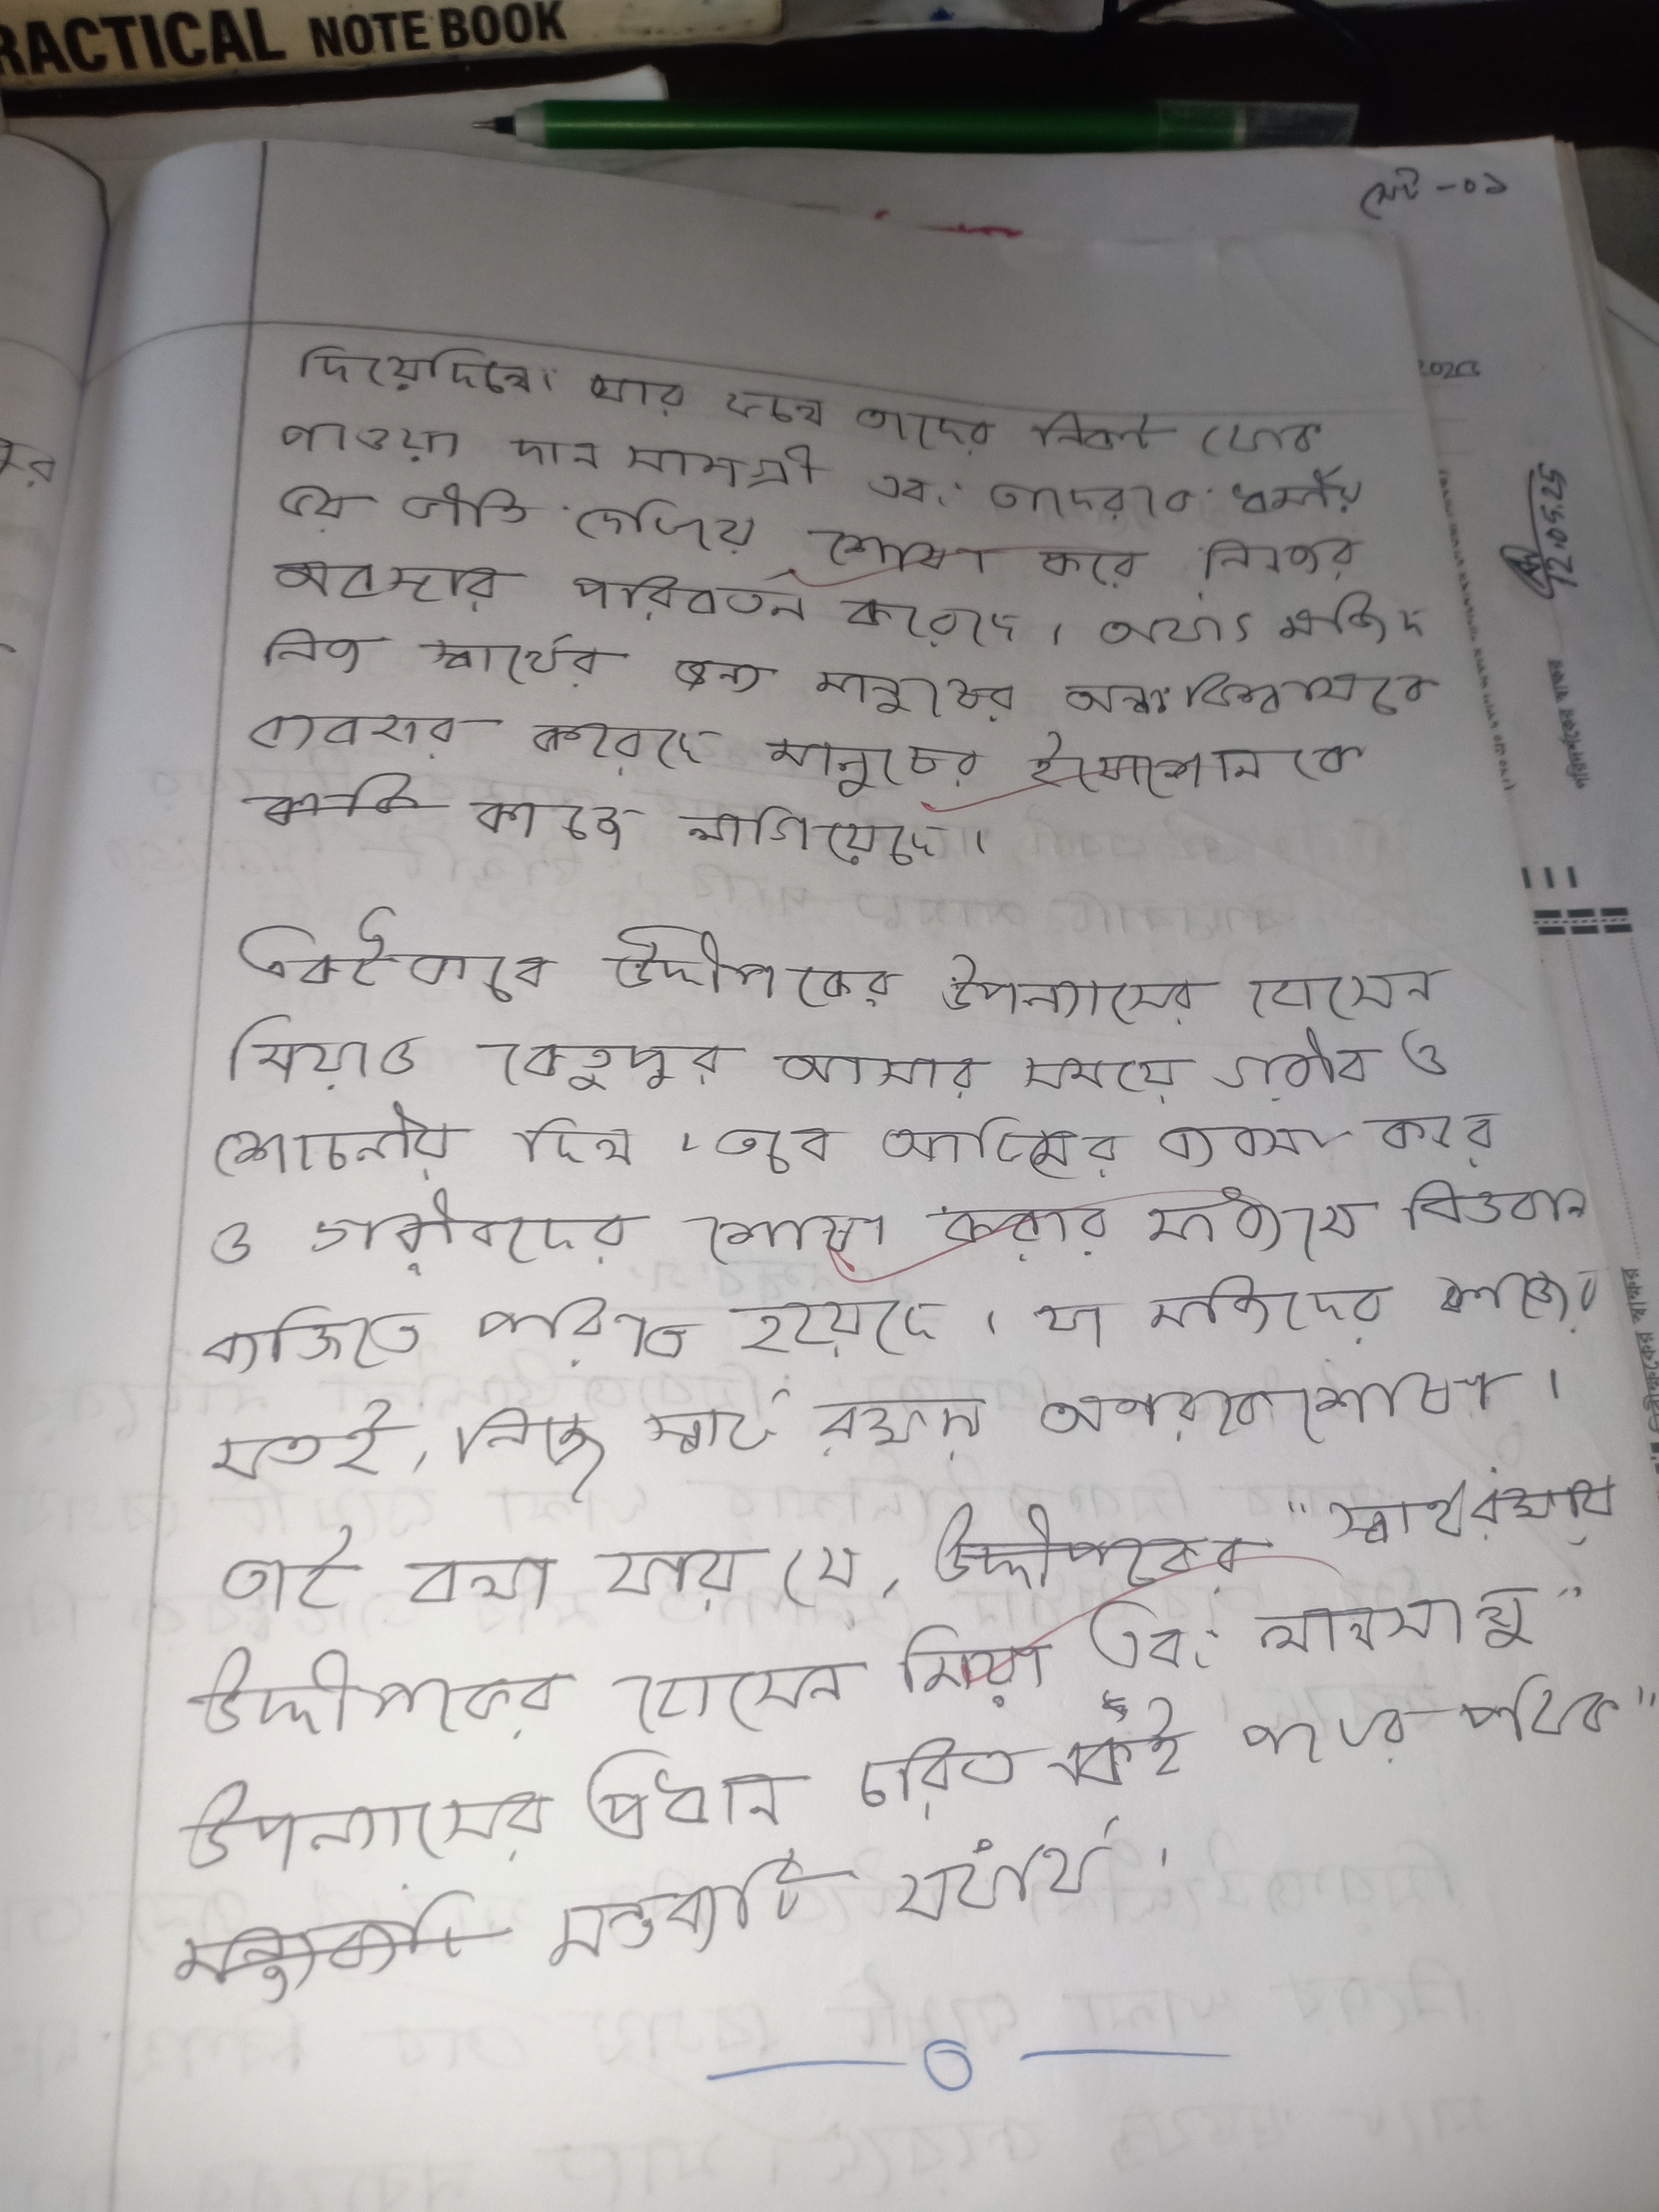 PRACTICAL NOTE BOOK
সেট -০১
দিয়েছিল। যার ফলে তাদের নিকট থেকে
পাওয়া দান সামগ্রী এবং তাদেরকে ধর্মীয়
ভয় ভীতি দেখিয়ে শোষণ করে নিজের
অবস্থার পরিবর্তন করেছে। অর্থাৎ মজিদ
নিজ স্বার্থের জন্য মানুষের অন্ধবিশ্বাসকে
ব্যবহার করেছে মানুষের ইমোশোনকে
কাজে লাগিয়েছে।
একইভাবে উদ্দীপকের উপন্যাসের হোসেন
মিয়াও কেতুপুর আসার সময়ে গরীব ও
শোচনীয় ছিল। তবে আফিমের ব্যবসা করে
ও গরীবদের শোষণ করার মাধ্যমে বিত্তবান
ব্যক্তিতে পরিণত হয়েছে। যা মজিদের কাজের
মতই, নিজ স্বার্থ রক্ষায় অপরকে শোষণ।
তাই বলা যায় যে, উদ্দীপকের "স্বার্থরক্ষায়
উদ্দীপকের হোসেন মিয়া এবং লালসালু"
উপন্যাসের প্রধান চরিত্র একই পথের পথিক"
মন্তব্যটি যথার্থ।
12.05.25